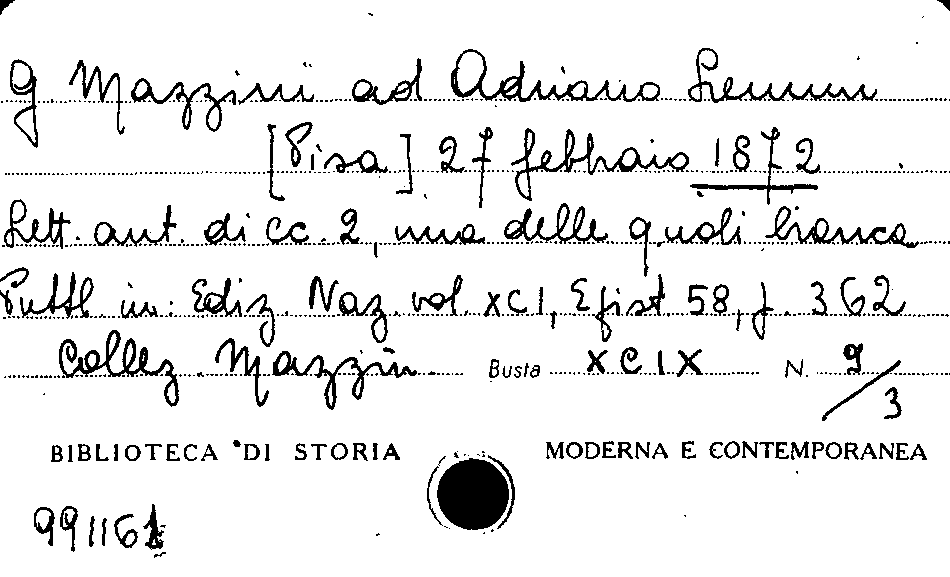 G Mazzini ad Adriano Lemmi
[Pisa] 27 febbraio 1872
Lett. aut. di cc. 2, una delle quali bianca
Pubbl in: Ediz. Naz. vol. XCI, Epist 58, p. 362
Collez. Mazzin. Busta XCIX N. 9/3
BIBLIOTECA DI STORIA MODERNA E CONTEMPORANEA
991161